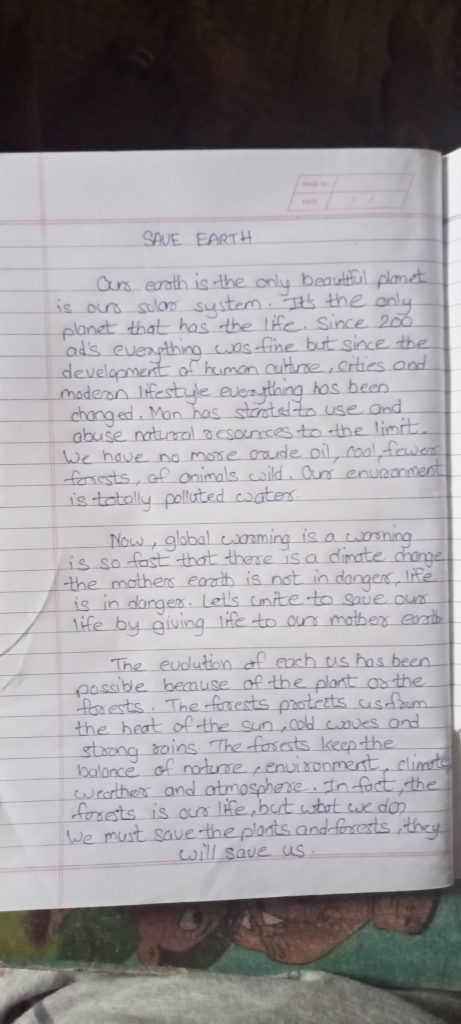 PAGE NO.
DATE
SAVE EARTH
Our earth is the only beautiful planet
is our solar system. It's the only
planet that has the life. Since 200
ad's everything was fine but since the
development of human culture, cities and
modern lifestyle everything has been
changed. Man has started to use and
abuse natural resources to the limit.
We have no more crude oil, coal, fewer
forests, of animals wild. Our environment
is totally polluted water.
Now, global warming is a warning
is so fast that there is a climate change
the mother earth is not in danger, life
is in danger. Let's unite to save our
life by giving life to our mother earth
The evolution of each us has been
possible because of the plant or the
forests. The forests protects us from
the heat of the sun, cold waves and
strong rains. The forests keep the
balance of nature, environment, climate
weather and atmosphere. In fact, the
forests is our life, but what we do
We must save the plants and forests, they
will save us.